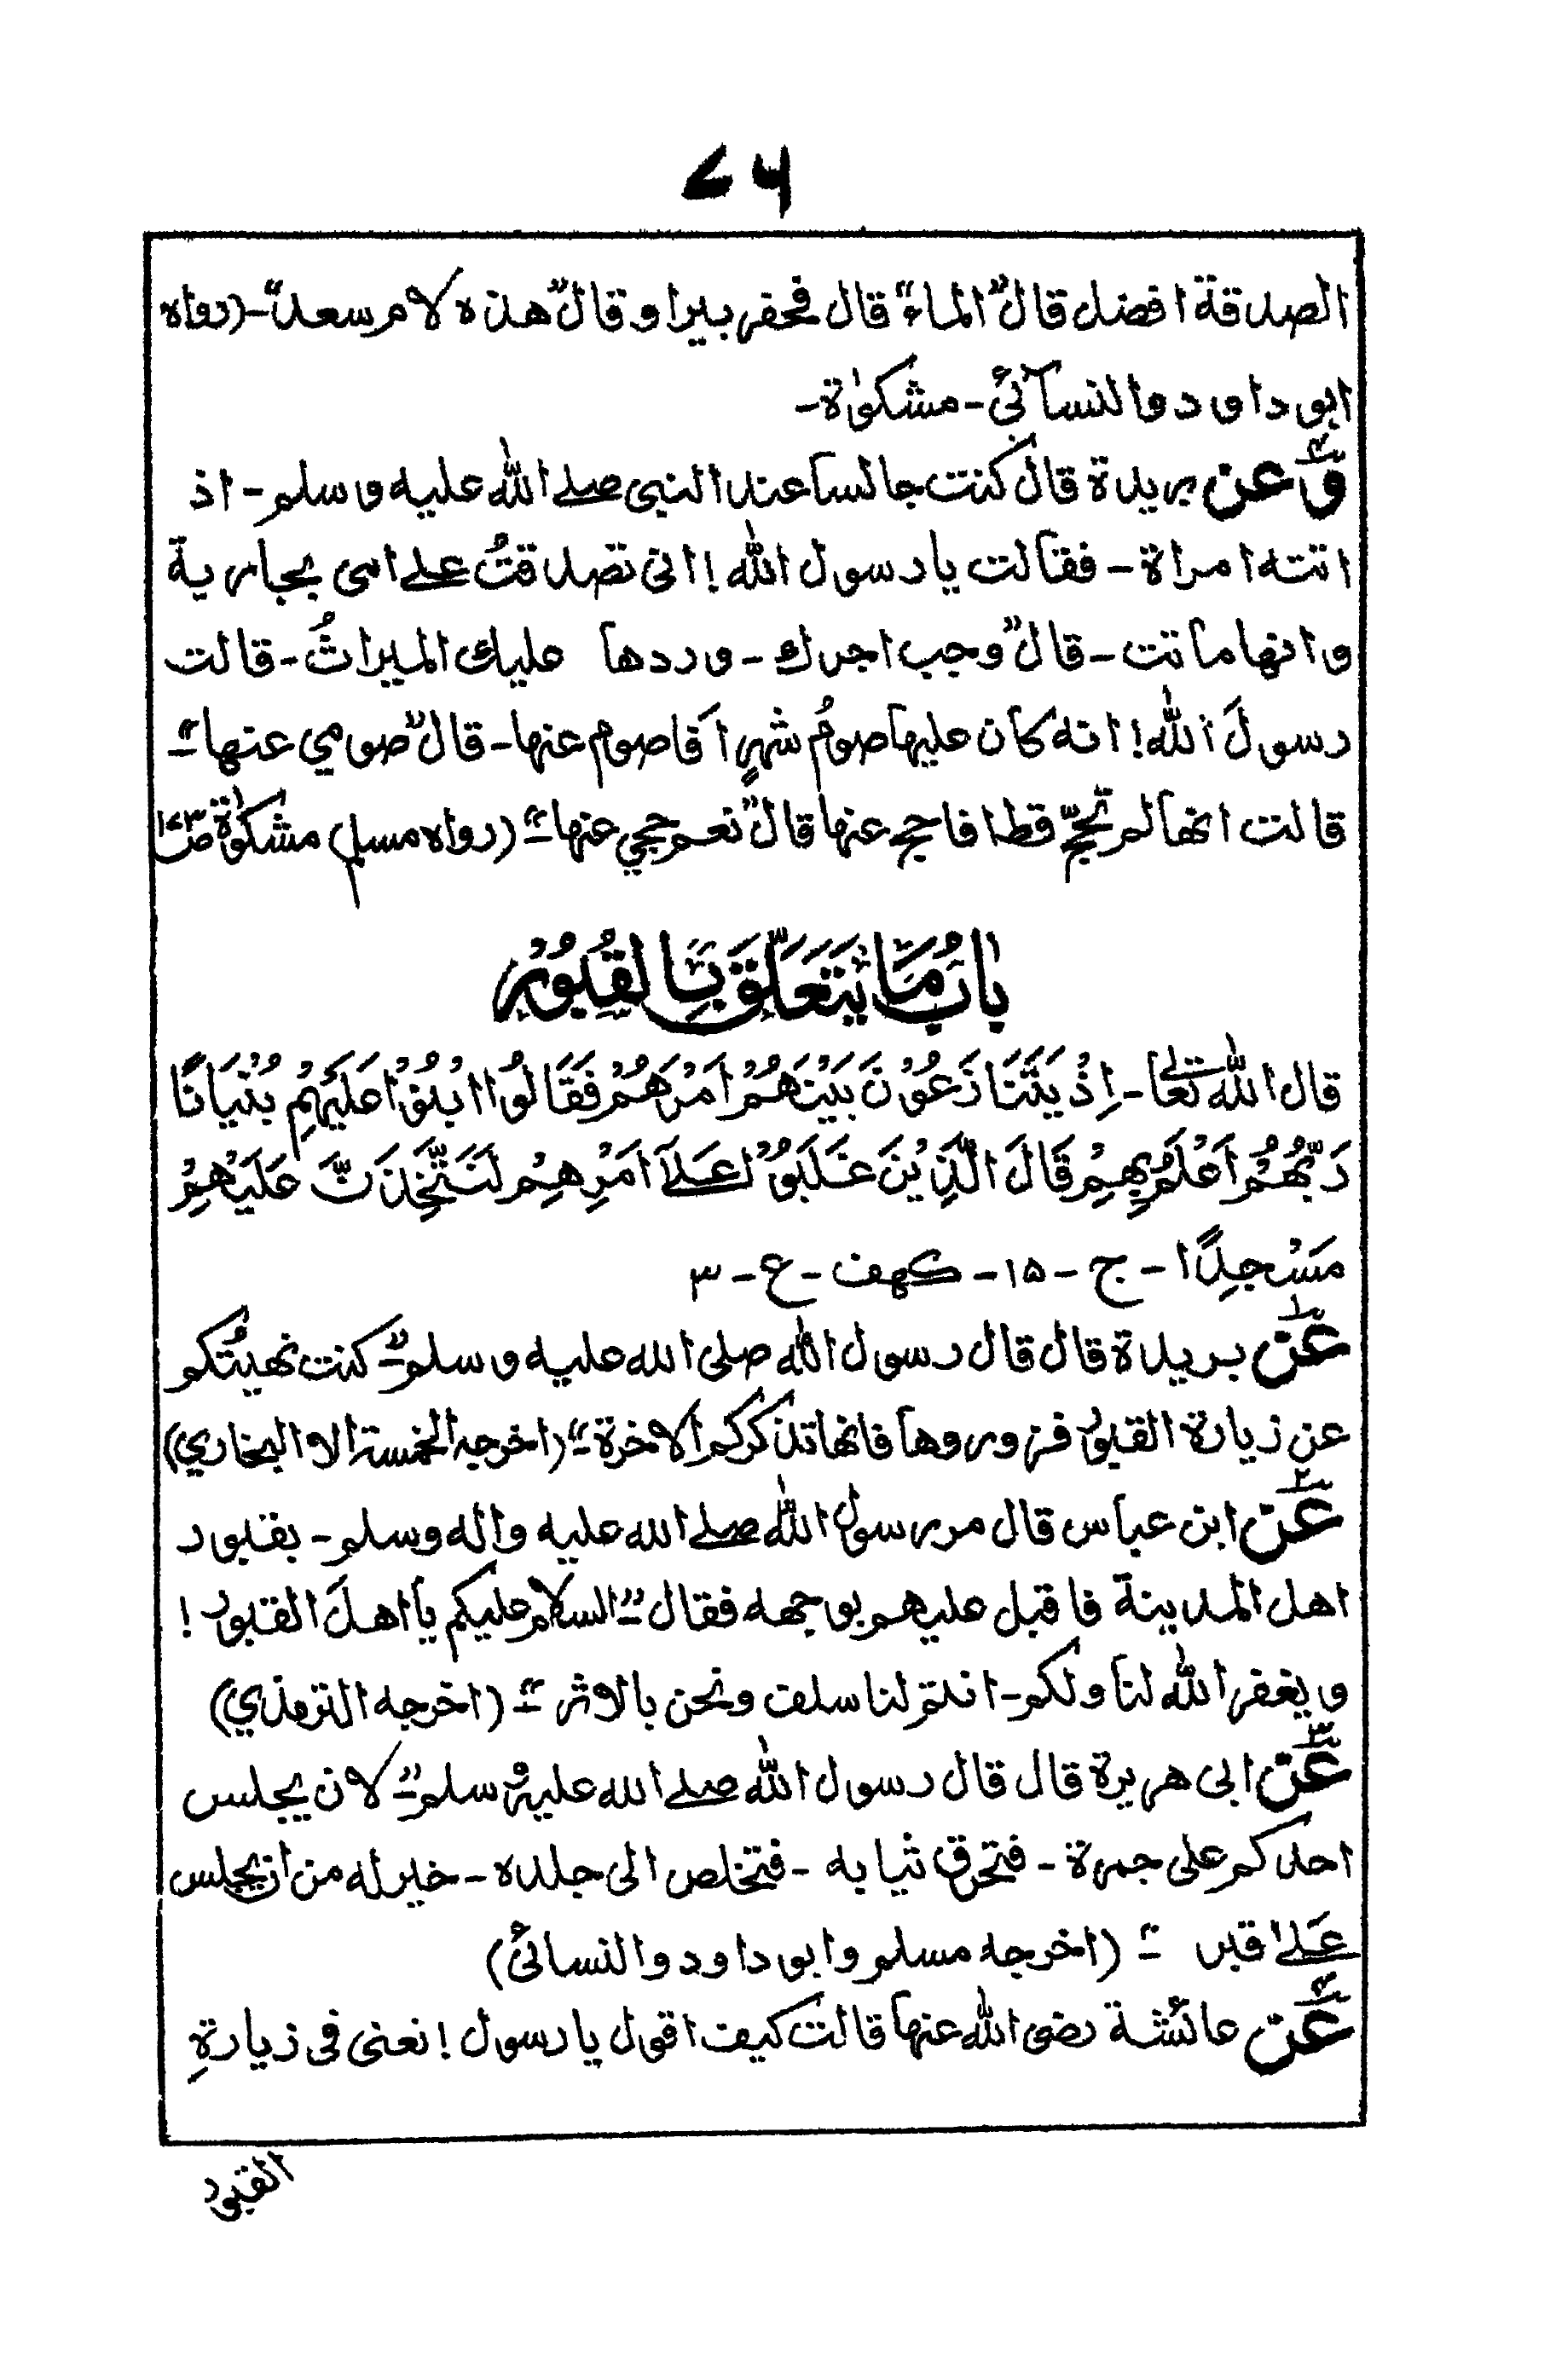 ۷۶
الصدقة افضل قال "الماء" قال فحفر بيرا و قال "هذه لام سعد" -(رواه
ابو داود والنسآئى - مشكوٰة -
وعن بريدة قال كنت جالسا عند النبى صلے الله عليه وسلم - اذ
اتته امراة - فقالت يا رسول الله! انى تصدقتُ علے امى بجارية
وانها ماتت - قال "وجب اجرك - وردها عليك الميراثُ - قالت
رسولَ الله! انه كان عليها صومُ شهرٍ أ فاصوم عنها - قال "صومي عنها" -
قالت انها لم تحجّ قط ا فاحج عنها قال "نعم حجي عنها" - (رواه مسلم) مشكوٰة ص۱۷۳
بابُ مَا يَتَعَلَّقُ بِالْقُبُوْرِ
قال الله تعالٰے - اِذْ يَتَنَازَعُوْنَ بَيْنَهُمْ اَمْرَهُمْ فَقَالُوْا ابْنُوْا عَلَيْهِمْ بُنْيَانًا
رَبُّهُمْ اَعْلَمُ بِهِمْ قَالَ الَّذِيْنَ غَلَبُوْا عَلٰٓے اَمْرِهِمْ لَنَتَّخِذَنَّ عَلَيْهِمْ
مَسْجِدًا - ج - ۱۵ - كهف - ع - ۳
عن ۱ بريدة قال قال رسول الله صلى الله عليه وسلم - "كنت نهيتُكم
عن زيارة القبور فزوروها فانها تذكركم الاخرة" - (اخرجه الخمسة الا البخاري)
عن ۲ ابن عباس قال مر رسول الله صلے الله عليه واله وسلم - بقبور
اهل المدينة فاقبل عليهم بوجهه فقال - "السلام عليكم يا اهلَ القبور!
ويغفر الله لنا ولكم - انتم لنا سلف ونحن بالاثر" - (اخرجه الترمذي)
عن ۳ ابى هريرة قال قال رسول الله صلے الله عليه وسلم - "لان يجلس
احدكم على جمرة - فتحرق ثيابه - فتخلص الى جلده - خير له من ان يجلس
عَلےٰ قبر" - (اخرجه مسلم وابو داود والنسائى)
عن ۴ عائشة رضى الله عنها قالت كيف اقول يا رسول! نعنى فى زيارةِ
القبور